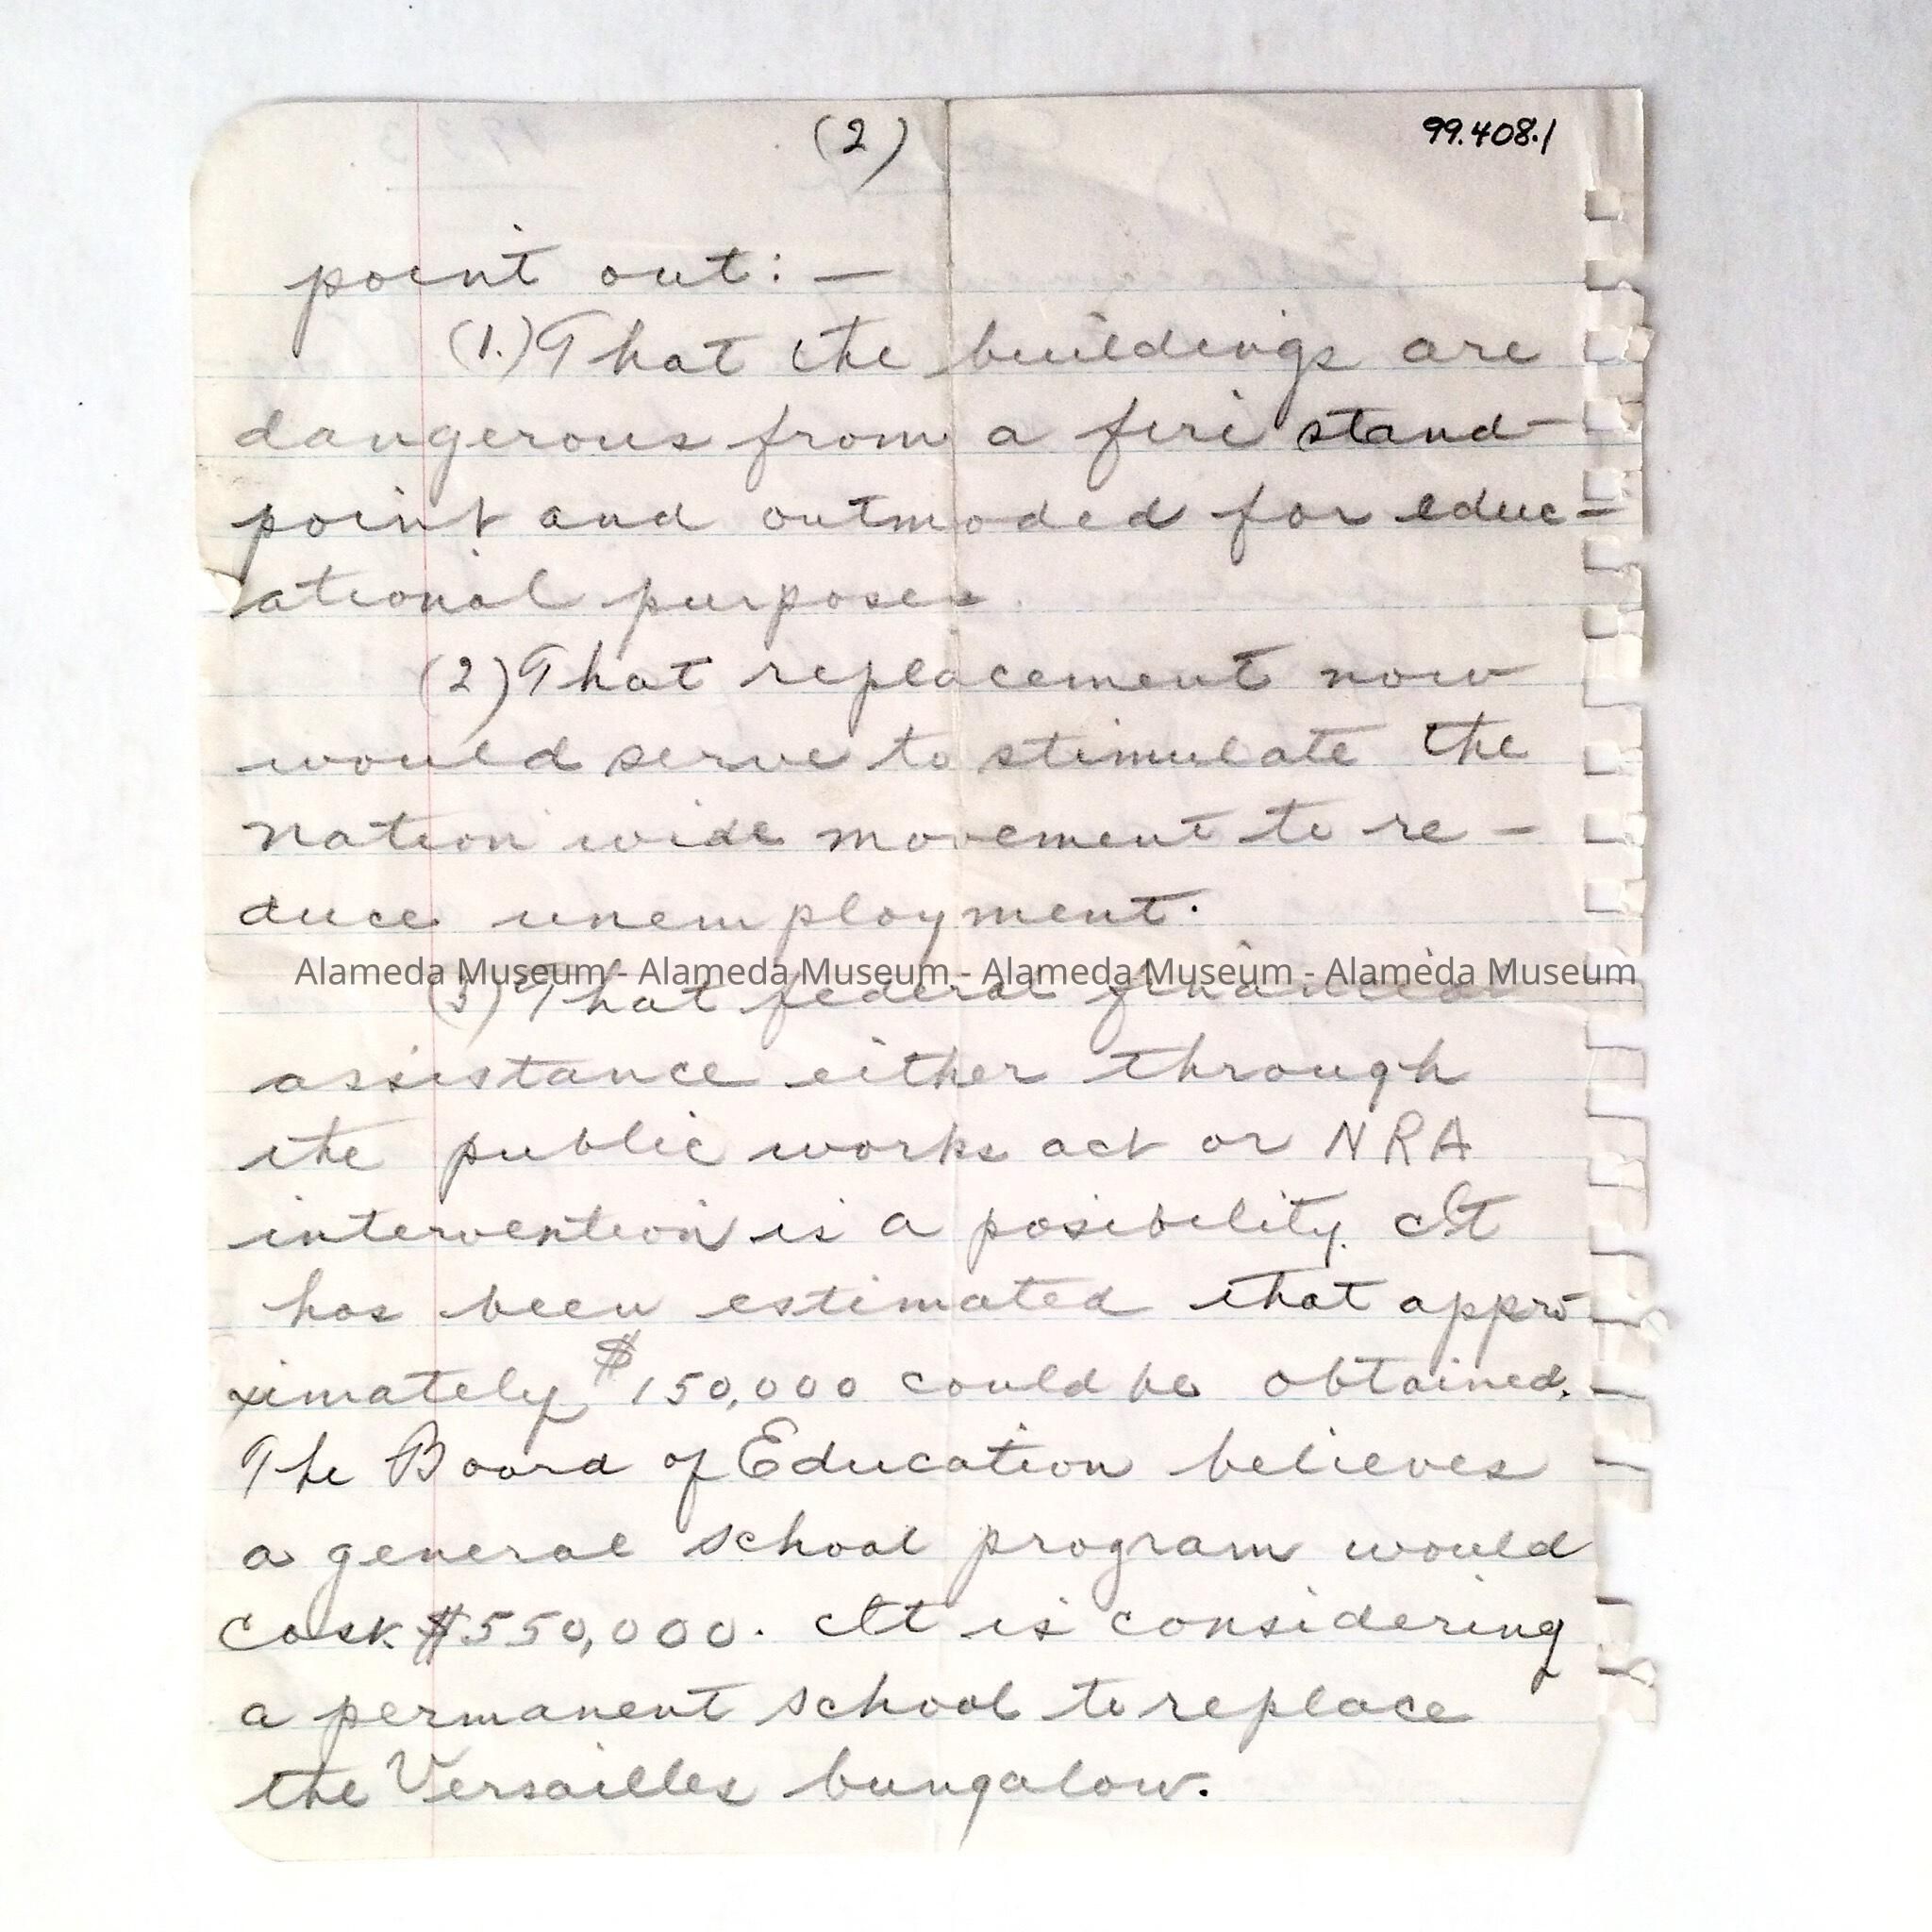 (2)
99.408.1
point out: —
(1.) That the buildings are
dangerous from a fire stand-
point and outmoded for educ-
ational purposes.
(2) That replacement now
would serve to stimulate the
nation wide movement to re-
duce unemployment.
Alameda Museum - Alameda Museum - Alameda Museum - Alameda Museum
(3) That federal financial
assistance either through
the public works act or NRA
intervention is a posibility. It
has been estimated that appro-
ximately $150,000 could be obtained.
The Board of Education believes
a general school program would
cost $550,000. It is considering
a permanent school to replace
the Versailles bungalow.